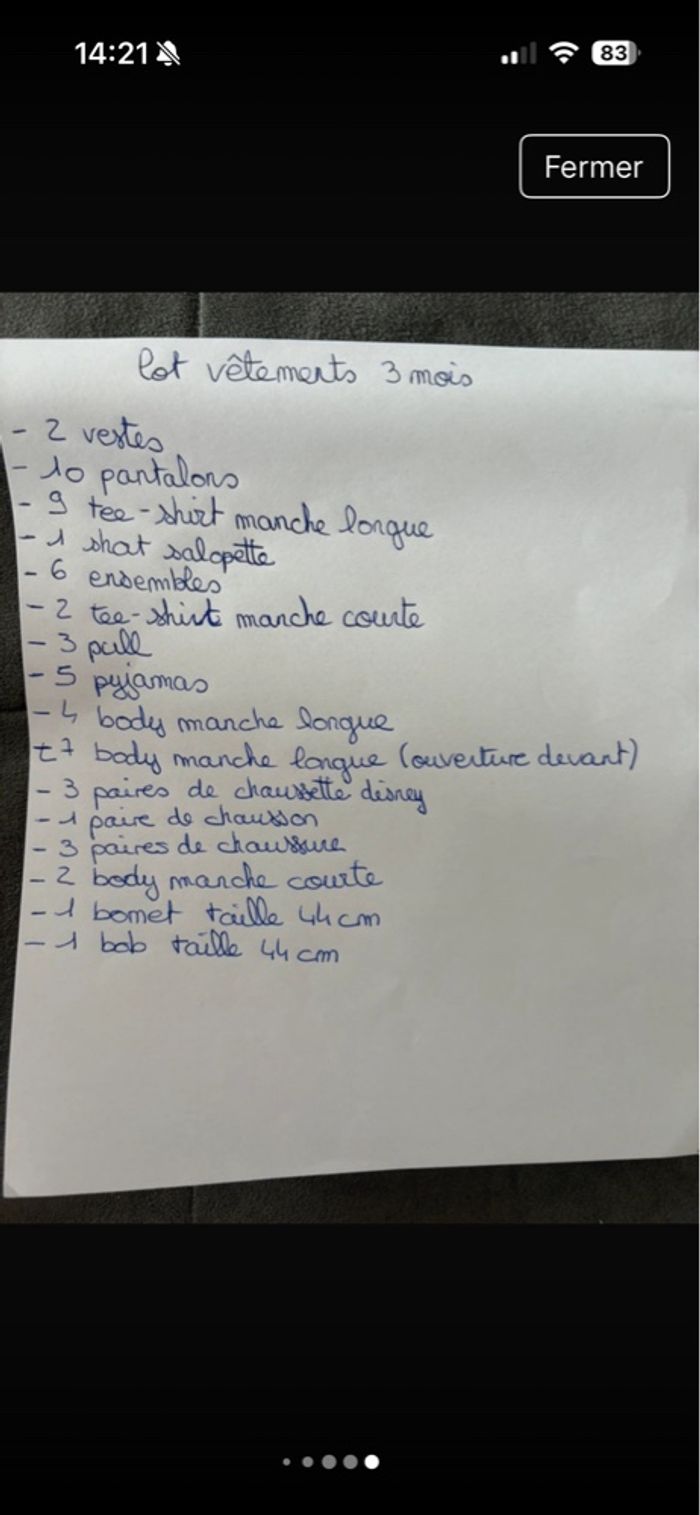 14:21
83
Fermer
lot vêtements 3 mois
- 2 vestes
- 10 pantalons
- 9 tee-shirt manche longue
- 1 shat salopette
- 6 ensembles
- 2 tee-shirt manche courte
- 3 pull
- 5 pyjamas
- 4 body manche longue
+ 7 body manche longue (ouverture devant)
- 3 paires de chaussette disney
- 1 paire de chausson
- 3 paires de chaussure
- 2 body manche courte
- 1 bonnet taille 44 cm
- 1 bob taille 44 cm